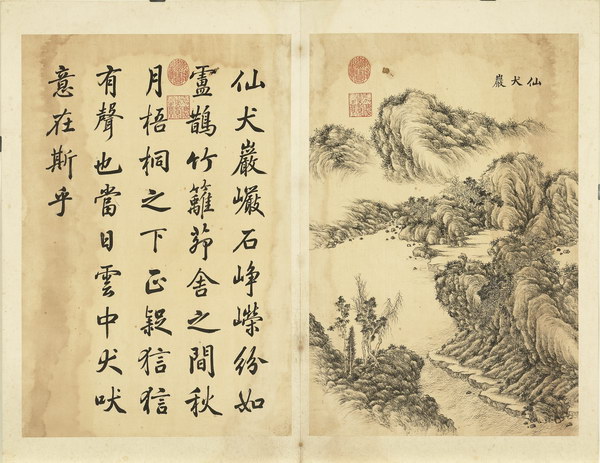 仙犬巖
仙犬巖巗石崢嶸紛如
盧鵲竹籬茆舍之間秋
月梧桐之下正疑狺狺
有聲也當日雲中犬吠
意在斯乎